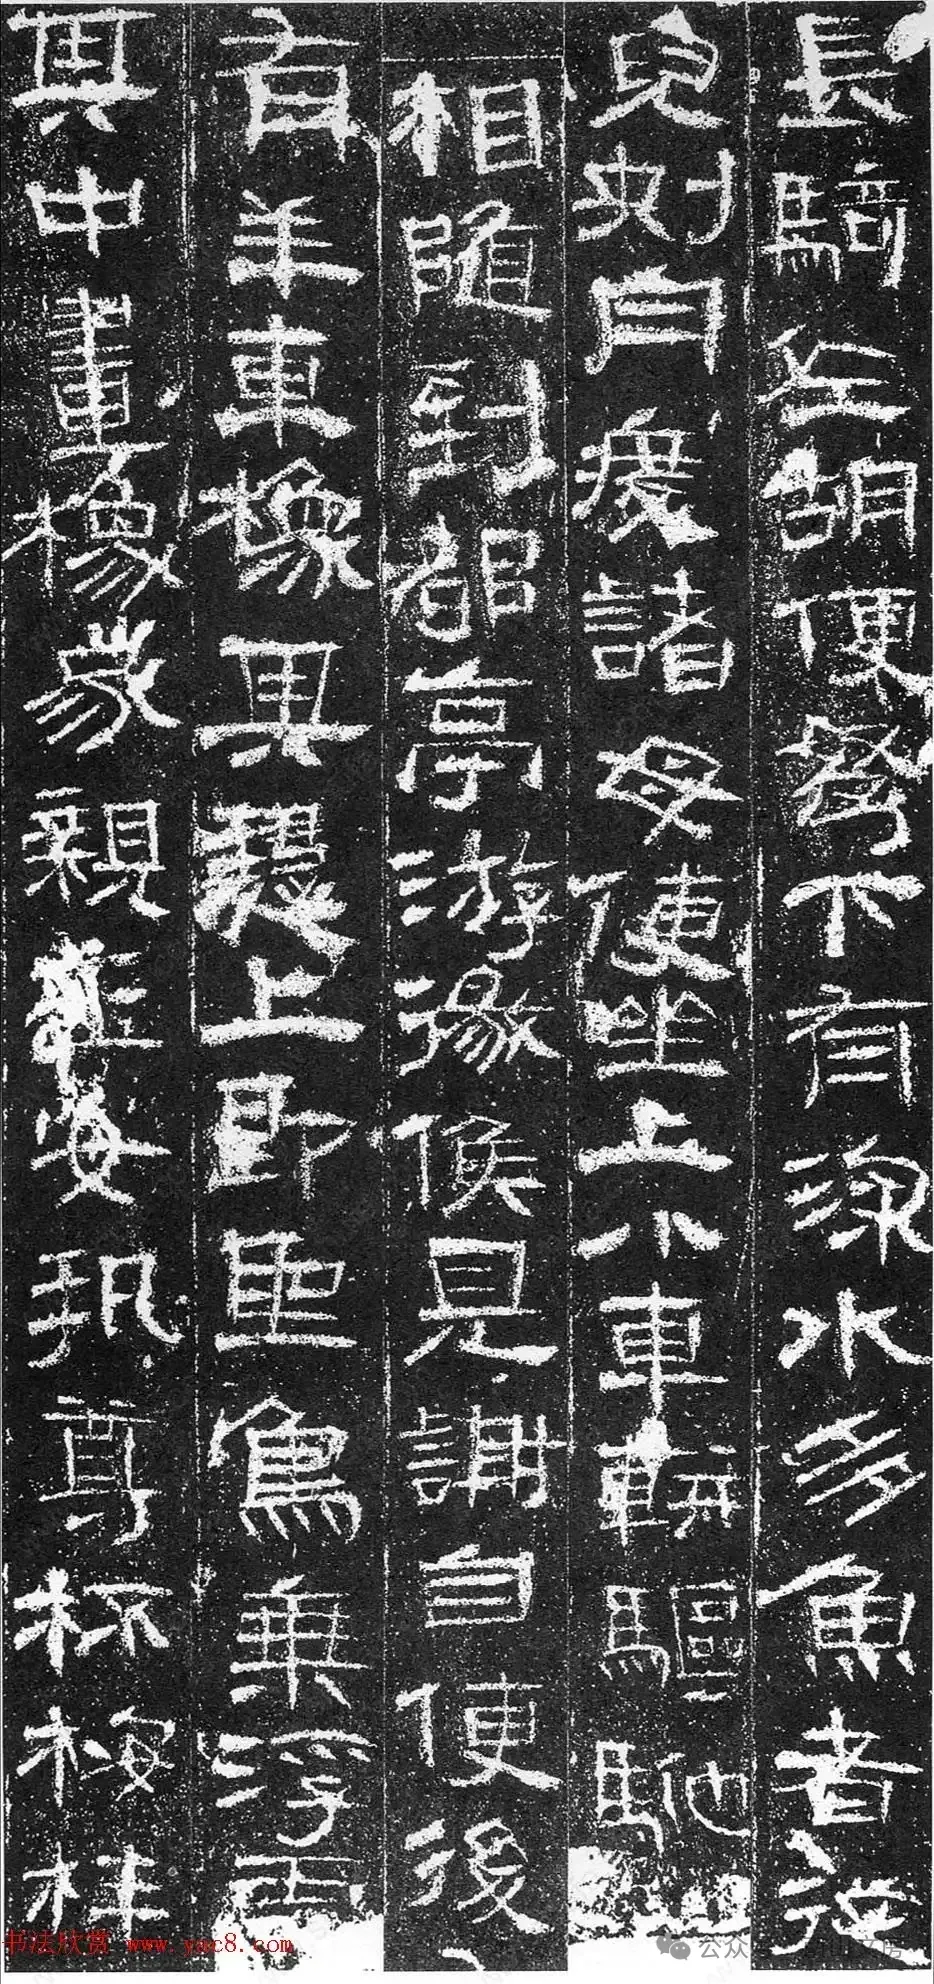 長騎佐胡使弩下有流水多魚者從
兒刾舟度諸母使坐上小車軿驅馳
相隨到都亭游徼候見謝自便後
有羊車橡其上即聖鳥乘浮雲
其中畫橡家親玉女執尊杯桉柈
书法欣赏 www.yac8.com
公众号